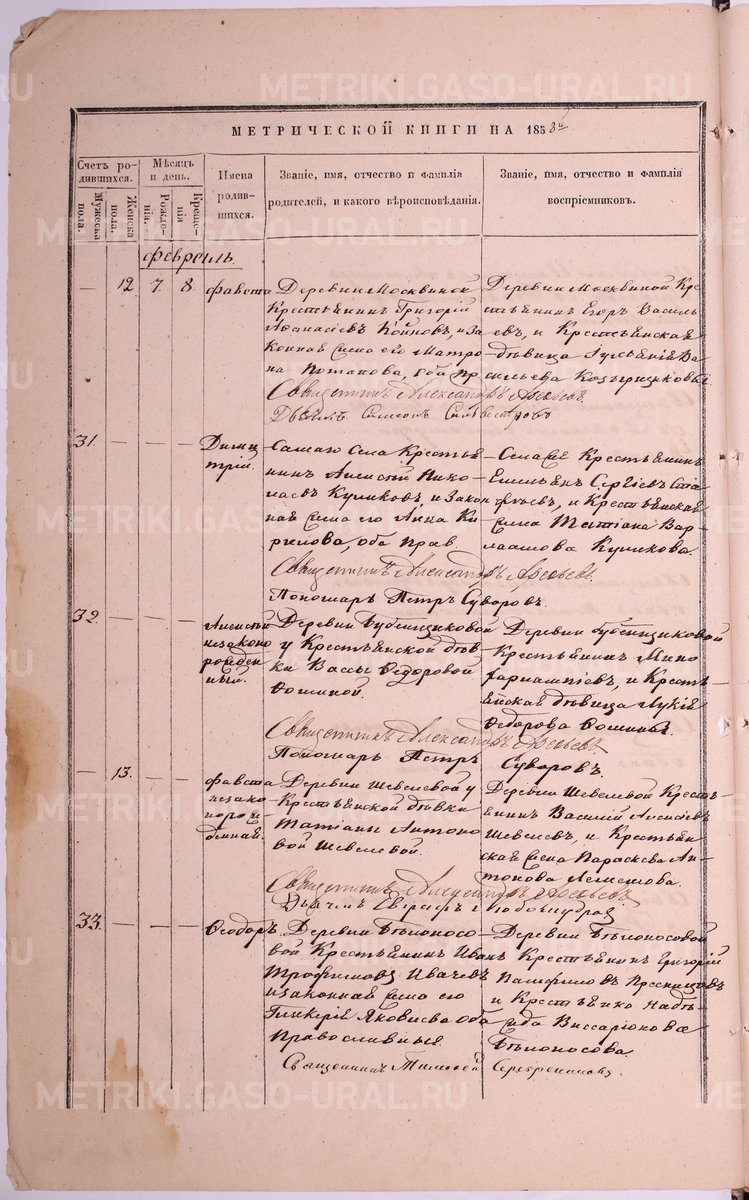 МЕТРИЧЕСКОЙ КНИГИ НА 1858й
Счетъ ро-
дившихся.
Мужеска
пола.
Женска
пола.
Мѣсяцъ
и день.
Рожде-
нія.
Креще-
нія
Имена
родив-
шихся.
Званіе, имя, отчество и фамилія
родителей, и какого вѣроисповѣданія.
Званіе, имя, отчество и фамилія
воспріемниковъ.
Февраиль.
— 12 7. 8. Фавста
Деревни Москвиной
Крестьянинъ Григорій
Афанасіевъ Койновъ, и за
конная жена его Матро
на Потапова, оба пр.
Деревни Москвиной Кре
стьянинъ Егоръ Василь
евъ, и Крестьянская
дѣвица Ва
сильева
Священникъ Александръ
31. — — — Дими
трій.
Самаго Села Крестья
нинъ Алексѣй Нико
лаевъ Куликовъ, и закон
ная жена его Анна Ки
рилова, оба прав.
Села Крестьянинъ
Емельянъ Сергіевъ
и Крестьянская
жена Татіана Вар
лаамова Куликова.
Священникъ Александръ
Пономарь Петръ Суворовъ.
32. — — — Алексѣй
незаконо
рожден
ный.
Деревни Бубенщиковой
у Крестьянской дѣв
ки Вассы Ѳедоровой
Ѳоминой.
Деревни Бубенщиковой
Крестьянинъ
и Кресть
янская дѣвица Лукія
Ѳедорова Ѳомина.
Священникъ Александръ
Пономарь Петръ Суворовъ.
— 13. — — Фавста
незако
норож
денная.
Деревни Шевелевой у
Крестьянской дѣвки
Татіаны Антоно
вой Шевелевой.
Деревни Шевелевой Кресть
янинъ Василій Алексѣевъ
Шевелевъ, и Крестьян
ская жена Параскева Ан
тонова
Священникъ Александръ
33. — — — Ѳеодоръ.
Деревни Бѣлоносо
вой Крестьянинъ Иванъ
Трофимовъ Ивачевъ
и законная жена его
Гликерія Яковлева оба
Православныя
Деревни Бѣлоносовой
Крестьянинъ Григорій
Памфиловъ
и Крестьянка
Виссаріонова
Бѣлоносова.
Священникъ Тимофей Серебренниковъ
METRIKI.GASO-URAL.RU